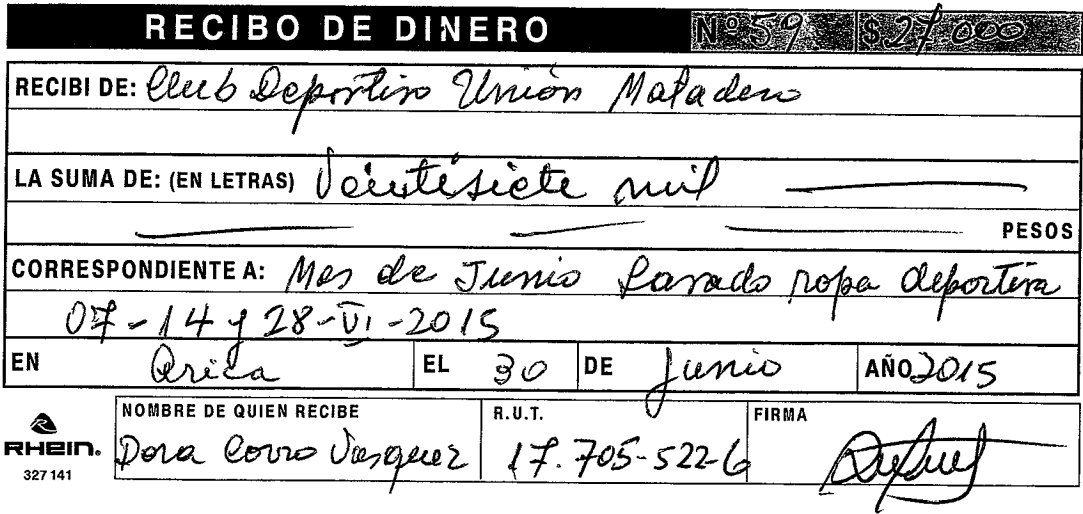 RECIBO DE DINERO Nº 59. $ 27000
RECIBI DE: Club Deportivo Unión Matadero
LA SUMA DE: (EN LETRAS) Veintisiete mil
PESOS
CORRESPONDIENTE A: Mes de Junio Lavado ropa deportiva
07-14 y 28-VI-2015
EN Arica EL 30 DE Junio AÑO 2015
NOMBRE DE QUIEN RECIBE R.U.T. FIRMA
RHEIN. Dora Corro Vasquez 17.705-522-6
327 141